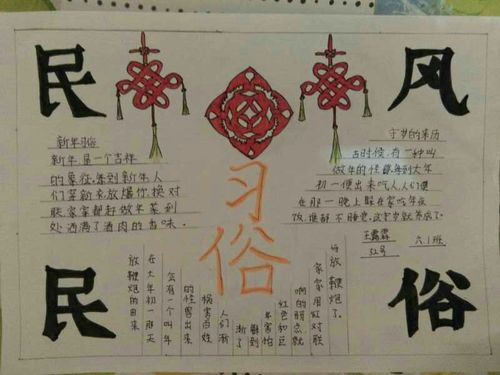 民 风
新年习俗
新年是一个吉祥
的象征,每到新年人
们
对
联,家家都赶做年菜,到
处洒满了酒肉的香味。
守岁的来历
古时候,有一种叫
做年的怪兽,每到大年
初一便出来吃人,人们便
在那一晚上躲在家吃年夜
饭,
习俗
王露霖
52号
六.1班
民 俗
放鞭炮的由来
在大年初一那天
会有一个叫年
的怪兽出来
祸害百姓
人们渐
渐了
年害怕
红色和巨
响的
家家用红对联
放鞭炮了。